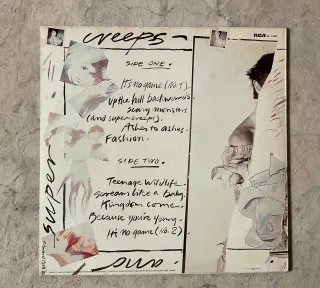 creeps
RCA
SIDE ONE.
It's no game (No. 1).
up the hill backwards.
scary monsters
(and super creeps).
Ashes to ashes.
Fashion.
SIDE TWO.
Teenage Wildlife.
scream like a Baby.
Kingdom come.
Because you're young.
It's no game (No. 2)
super
and